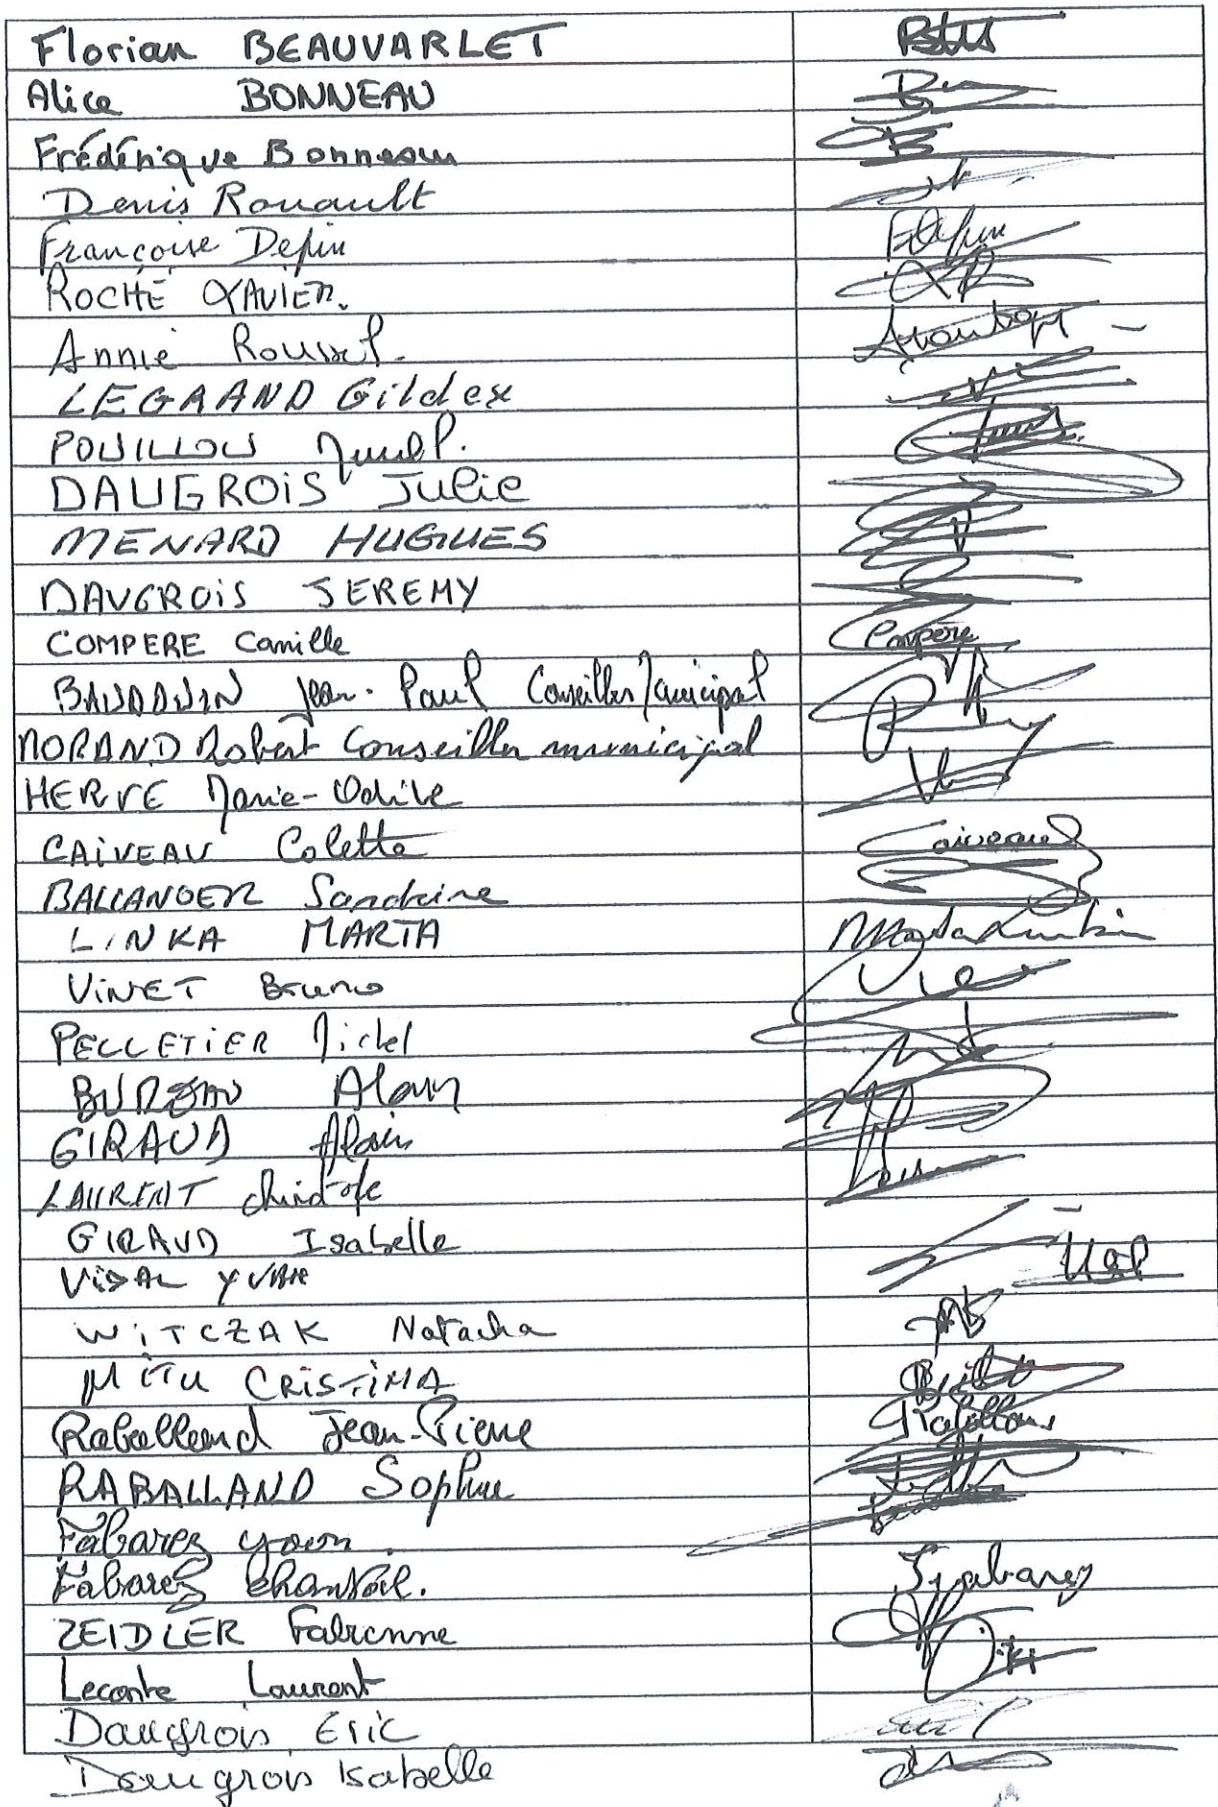 Florian BEAUVARLET
Alice BONNEAU
Frédérique Bonneau
Denis Rouault
Françoise Depin FDepin
ROCHE XAVIER. XR
Annie Roussel.
LEGRAND Gildex
POUILLOU P.
DAUGROIS Julie
MENARD HUGUES
DAUGROIS JEREMY
COMPERE Camille Compère
BAUDOUIN Jean-Paul Conseiller Municipal
MORAND Robert Conseiller municipal
HERVE Marie-Odile
CAIVEAU Colette Caiveau
BALLANGER Sandrine
LINKA MARTA
VINET Bruno
PELLETIER Michel
BUREAU Alain
GIRAUD Alain
LAURENT Christofe
GIRAUD Isabelle
VIDAL YVAN
WITCZAK Natacha
MITU CRISTINA
Raballand Jean-Pierre
RABALLAND Sophie
Fabarez yoan.
Fabarez Chantal. Fabarez
ZEIDLER Fabienne
Leconte Laurent
Daugrois Eric
Daugrois Isabelle